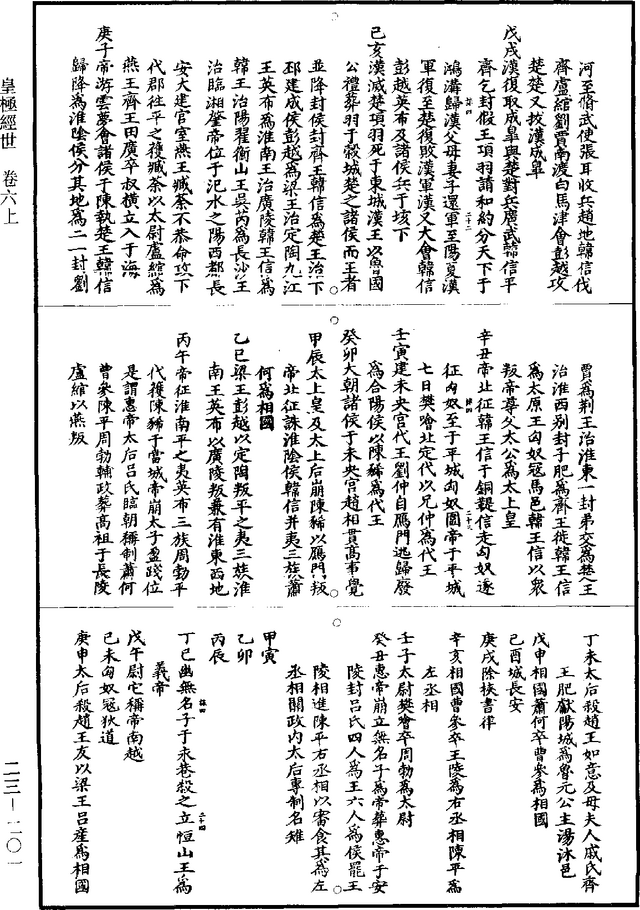 皇極經世 卷六上
河至脩武使張耳收兵趙地韓信伐
齊盧綰劉賈南渡白馬津會彭越攻
楚楚又拔漢成皐
戊戌漢復取成皐與楚對兵廣武韓信平
齊乞封假王項羽請和約分天下于
鴻溝歸漢父母妻子還軍至陽夏漢
軍復至楚復敗漢軍漢又大會韓信
彭越英布及諸侯兵于垓下
己亥漢滅楚項羽死于東城漢王以魯國
公禮葬羽于糓城楚之諸侯而王者
並降封侯封齊王韓信為楚王治下
邳建成侯彭越為梁王治定陶九江
王英布為淮南王治廣陵韓王信為
韓王治陽翟衡山王吳芮為長沙王
治臨湘肇帝位于汜水之陽西都長
安大建官室燕王臧荼不恭命攻下
代郡往平之獲臧荼以太尉盧綰為
燕王齊王田廣卒叔橫立入于海
庚子帝游雲夢會諸侯于陳執楚王韓信
歸降為淮隂侯分其地為二一封劉
賈為荆王治淮東一封弟交為楚王
治淮西别封子肥為齊王徙韓王信
為太原王匈奴冦馬邑韓王信以衆
叛帝尊父太公為太上皇
辛丑帝北征韓王信于銅鞮信走匈奴遂
征匈奴至于平城匈奴圍帝于平城
七日樊噲北定代以兄仲為代王
壬寅建未央宫代王劉仲自鴈門逃歸廢
為合陽侯以陳豨為代王
癸卯大朝諸侯于未央宫趙相貫高事覺
甲辰太上皇及太上后崩陳豨以鴈門叛
帝北征誅淮隂侯韓信并夷三族蕭
何為相國
乙巳梁王彭越以定陶叛平之夷三族淮
南王英布以廣陵叛兼有淮東西地
丙午帝征淮南平之夷英布三族周勃平
代獲陳豨于當城帝崩太子盈踐位
是謂惠帝太后吕氏臨朝稱制蕭何
曹參陳平周勃輔政葬高祖于長陵
盧綰以燕叛
丁未太后殺趙王如意及母夫人戚氏齊
王肥獻陽城為魯元公主湯沐邑
戊申相國蕭何卒曹參為相國
己酉城長安
庚戌除挾書律
辛亥相國曹參卒王陵為右丞相陳平為
左丞相
壬子太尉樊噲卒周勃為太尉
癸丑惠帝崩立無名子為帝葬惠帝于安
陵封吕氏四人為王六人為侯罷王
陵相進陳平右丞相以審食其為左
丞相關政内太后專制名雉
甲寅
乙卯
丙辰
丁巳幽無名子于永巷殺之立恒山王為
義帝
戊午尉佗稱帝南越
己未匈奴冦狄道
庚申太后殺趙王友以梁王吕産為相國
二三—二〇一